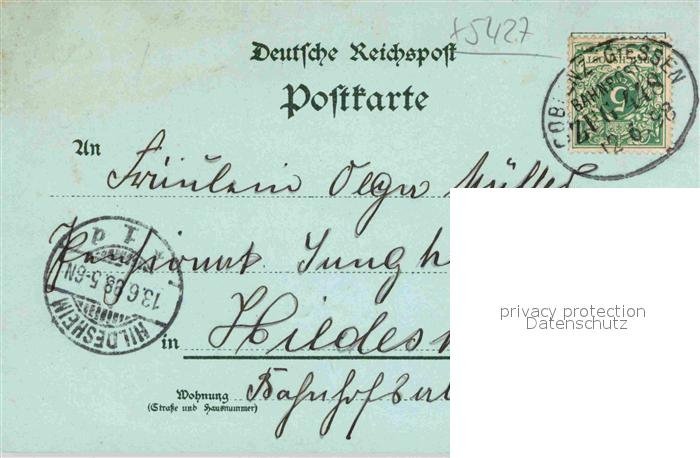 +5427
Deutsche Reichspost
Postkarte
COBLENZ-GIESSEN
BAHNPOST
ZUG
12 6 98
5
An
Fräulein Olga Müller
Pensionat Jungh
HILDESHEIM
13.6.98.5-6N
in
Hildes
Wohnung
(Straße und Hausnummer)
Bahnhof
privacy protection
Datenschutz